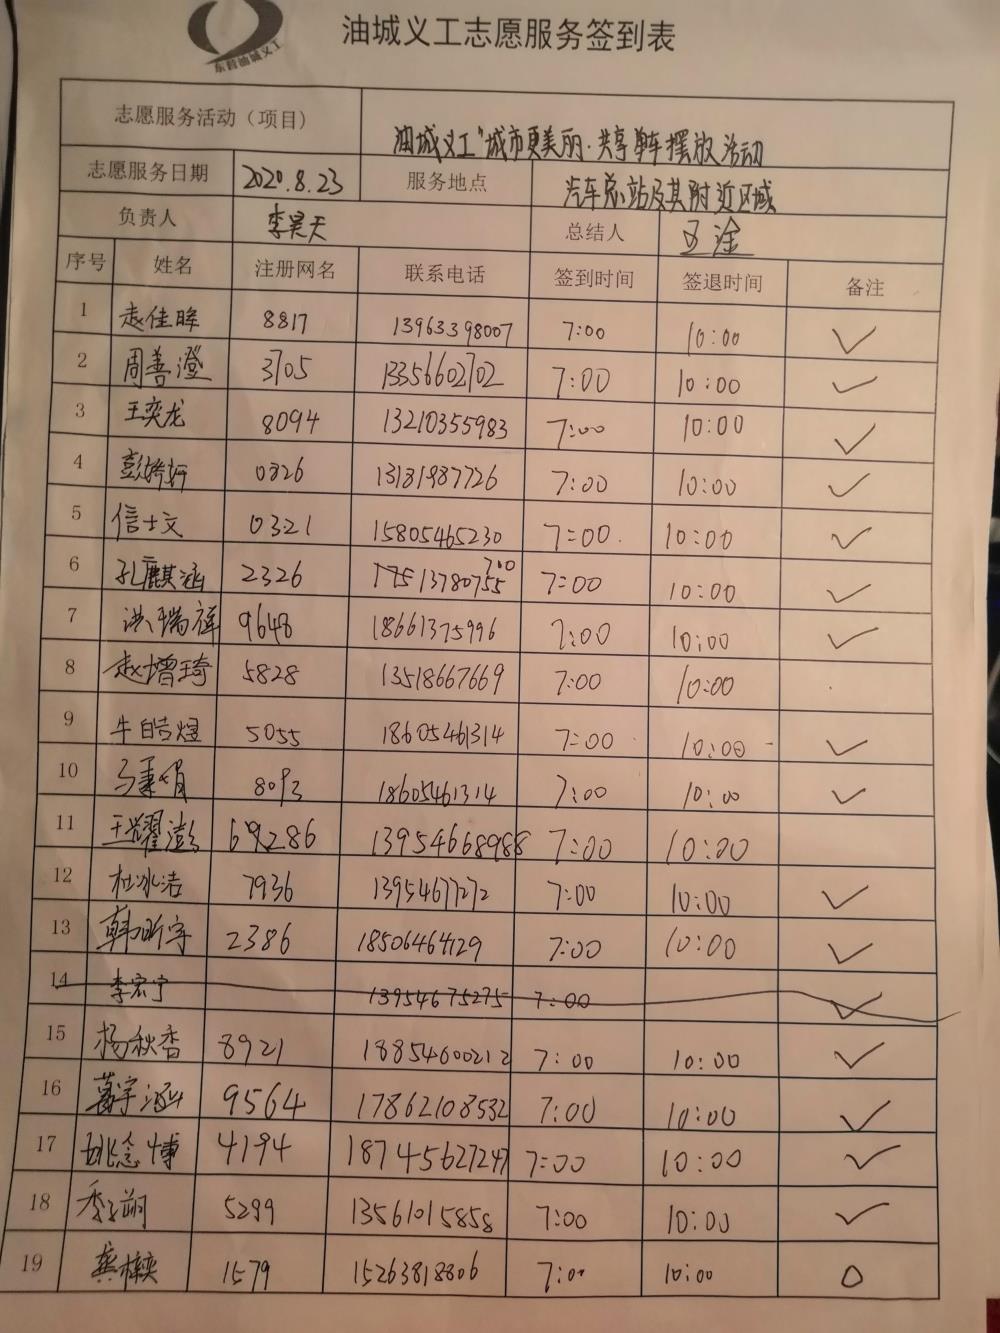 东营油城义工
油城义工志愿服务签到表
志愿服务活动（项目） 油城义工"城市更美丽·共享单车摆放活动
志愿服务日期 2020.8.23 服务地点 汽车总站及其附近区域
负责人 李昊天 总结人
序号 姓名 注册网名 联系电话 签到时间 签退时间 备注
1 赵佳晖 8817 13963398007 7:00 10:00 ✓
2 周善澄 3705 13356602702 7:00 10:00 ✓
3 王奕龙 8094 13210355983 7:00 10:00 ✓
4 0326 13181987726 7:00 10:00 ✓
5 信士文 0321 15805465230 7:00 10:00 ✓
6 孔麒涵 2326 7:00 10:00 ✓
7 洪瑞祥 9648 18661375996 7:00 10:00 ✓
8 赵增琦 5828 13518667669 7:00 10:00
9 牛皓煜 5055 18605461314 7:00 10:00 ✓
10 马秉娟 8093 18605461314 7:00 10:00 ✓
11 王耀澎 69286 13954668988 7:00 10:00
12 杜冰洁 7936 13954677272 7:00 10:00 ✓
13 韩昕宇 2386 18506464129 7:00 10:00 ✓
14 李宏宁 13954675275 7:00 ✓
15 杨秋香 8921 18854600212 7:00 10:00 ✓
16 葛宇涵 9564 17862108532 7:00 10:00 ✓
17 姚念博 4194 18745627247 7:00 10:00 ✓
18 季子朔 5299 13561015858 7:00 10:00 ✓
19 1579 15263818806 7:00 10:00 O